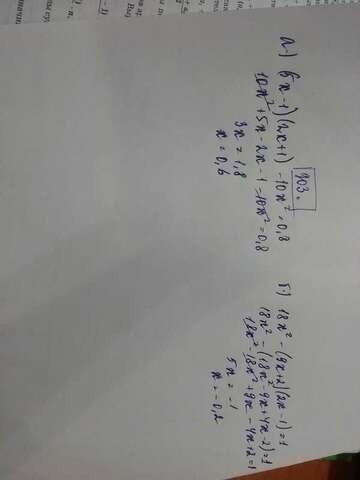 903.
а) (5x-1)(2x+1) -10x² = 0,8
10x² + 5x - 2x - 1 - 10x² = 0,8
3x = 1,8
x = 0,6
б) 18x² - (9x+2)(2x-1) = 1
18x² - (18x² - 9x + 4x - 2) = 1
18x² - 18x² + 9x - 4x + 2 = 1
5x = -1
x = -0,2